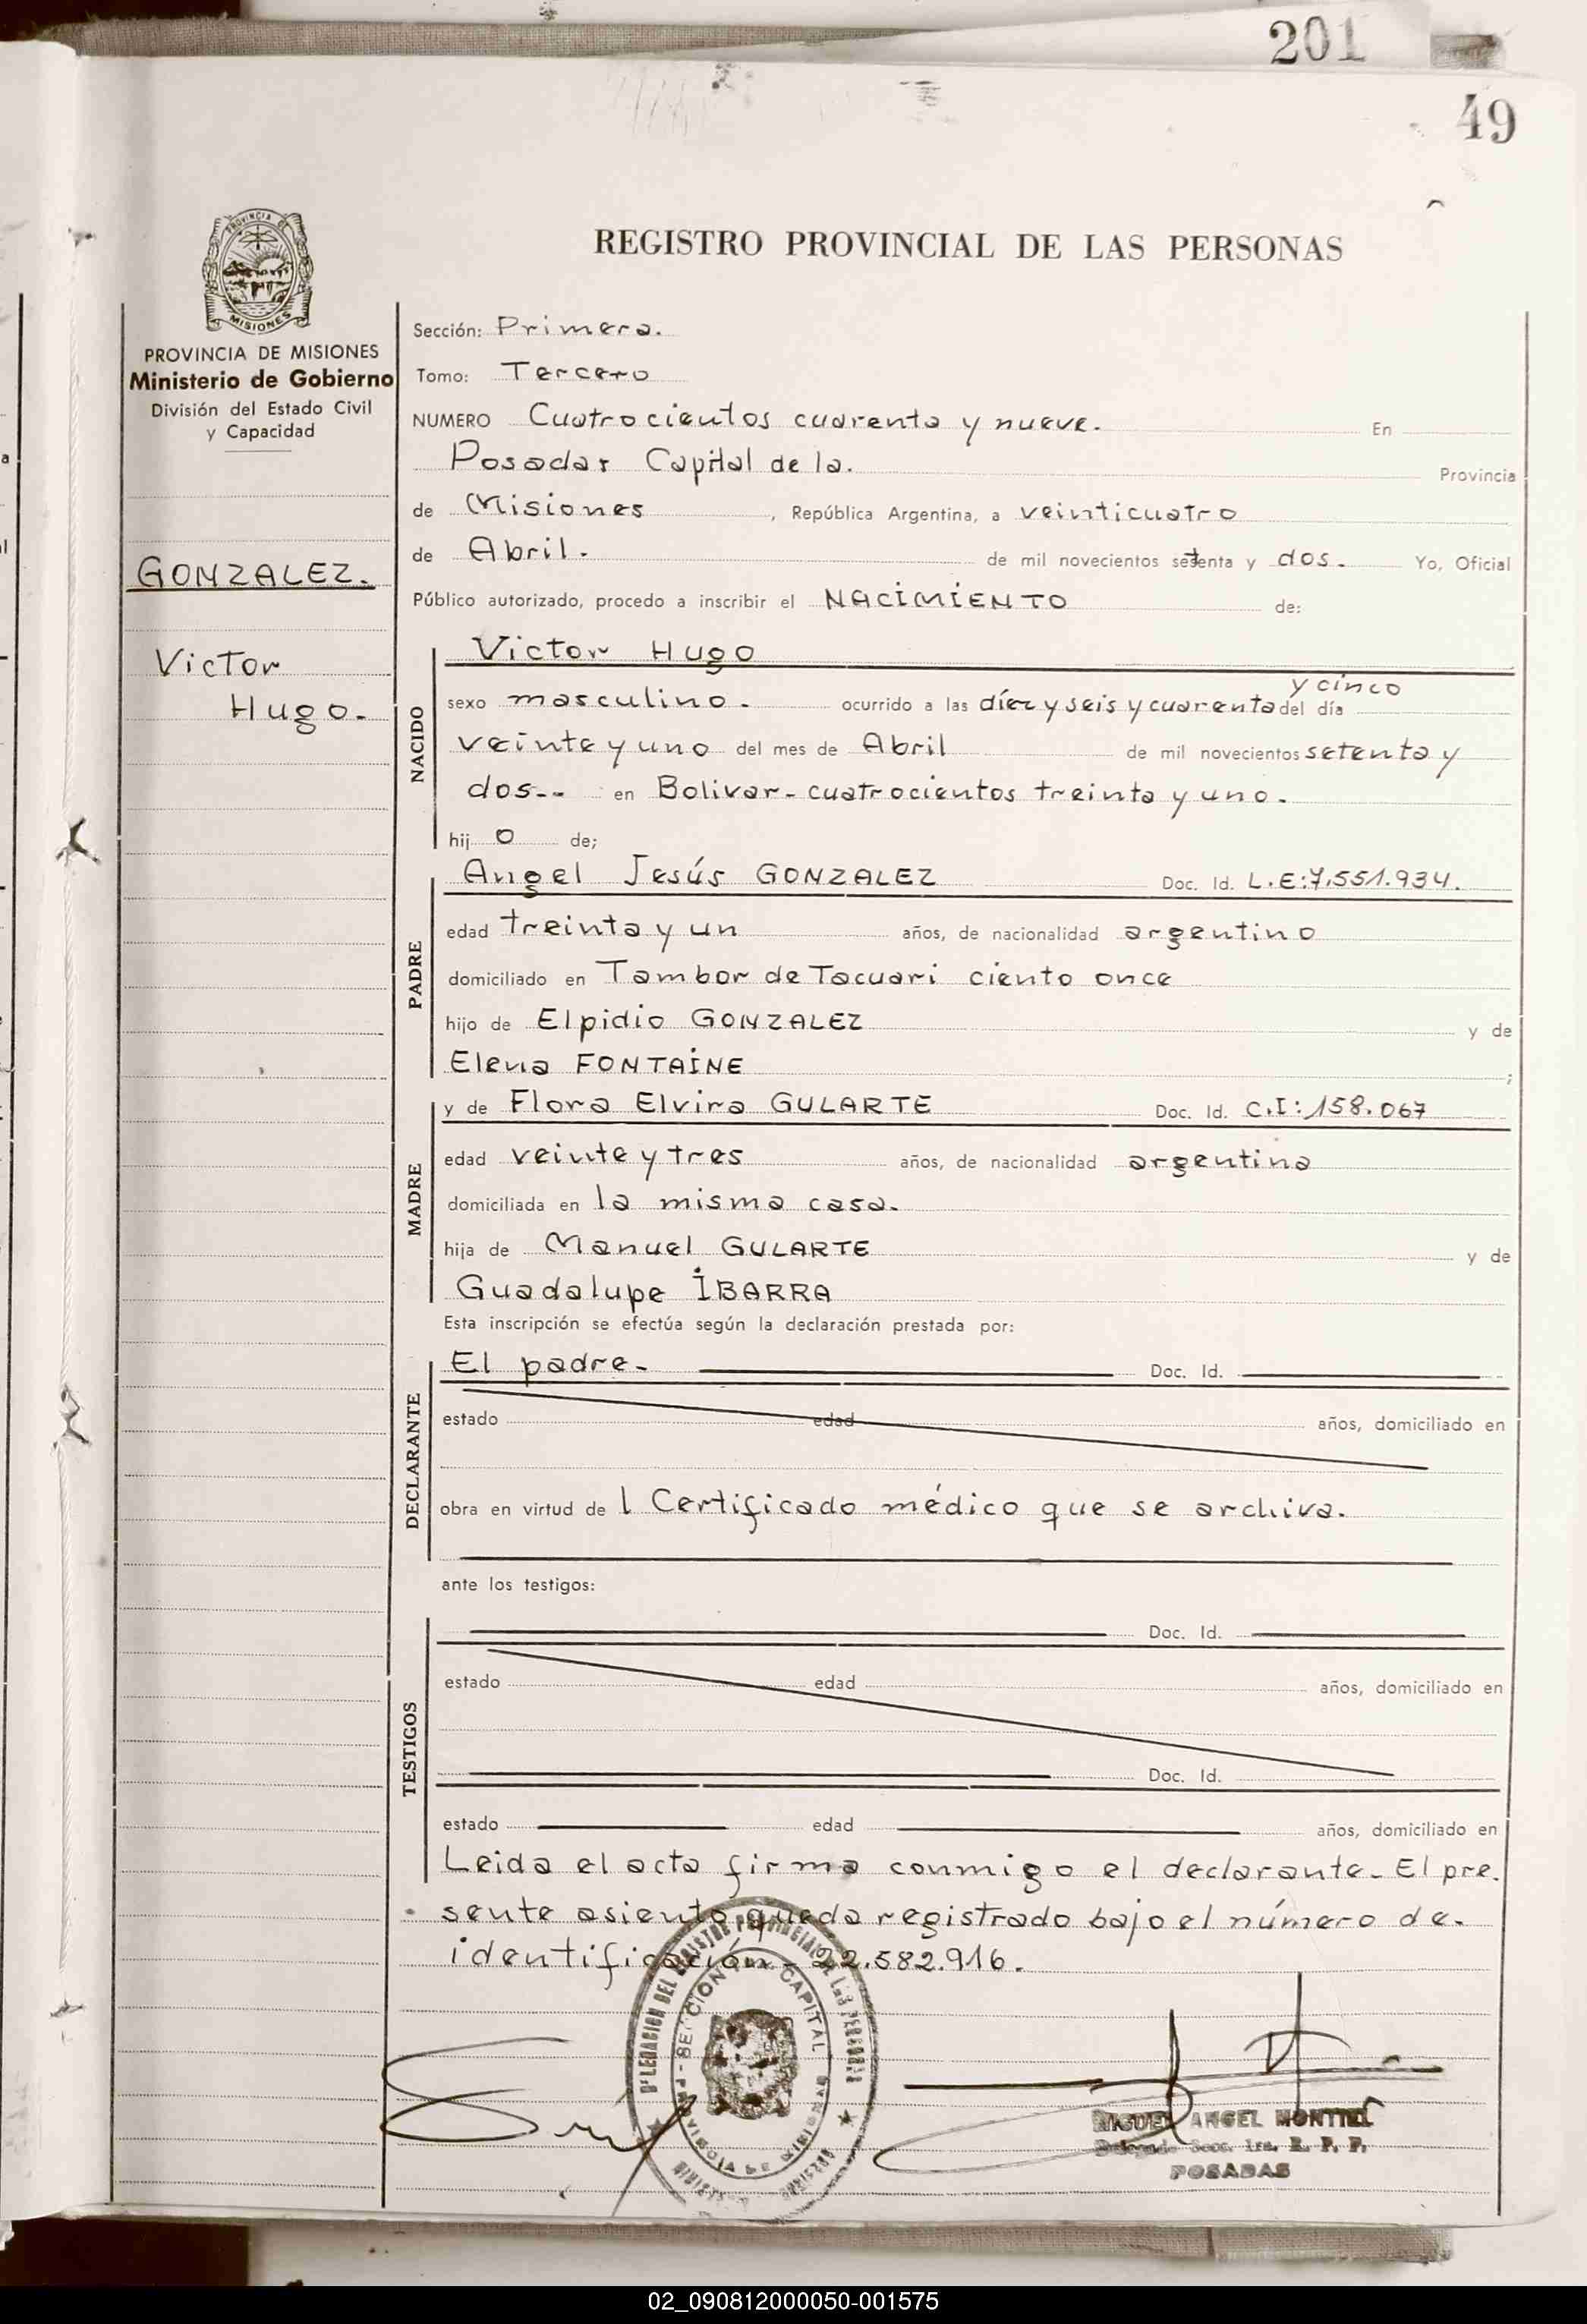 201
49
PROVINCIA DE
MISIONES
REGISTRO PROVINCIAL DE LAS PERSONAS
PROVINCIA DE MISIONES
Ministerio de Gobierno
División del Estado Civil
y Capacidad
GONZALEZ.
Victor
Hugo.-
Sección: Primera.
Tomo: Tercero
NUMERO Cuatrocientos cuarenta y nueve. En
Posadas Capital de la. Provincia
de Misiones, República Argentina, a veinticuatro
de Abril. de mil novecientos setenta y dos. Yo, Oficial
Público autorizado, procedo a inscribir el NACIMIENTO de:
NACIDO
Victor Hugo
y cinco
sexo masculino. ocurrido a las díez y seis y cuarenta del día
veinte y uno del mes de Abril de mil novecientos setenta y
dos.-- en Bolivar - cuatrocientos treinta y uno.
hij o de;
PADRE
Angel Jesús GONZALEZ Doc. Id. L.E:7.551.934.
edad treinta y un años, de nacionalidad argentino
domiciliado en Tambor de Tacuari ciento once
hijo de Elpidio GONZALEZ y de
Elena FONTAINE ;
MADRE
y de Flora Elvira GULARTE Doc. Id. C.I:158.067
edad veinte y tres años, de nacionalidad argentina
domiciliada en la misma casa.
hija de Manuel GULARTE y de
Guadalupe IBARRA
Esta inscripción se efectúa según la declaración prestada por:
DECLARANTE
El padre. Doc. Id.
estado edad años, domiciliado en
obra en virtud de l Certificado médico que se archiva.
ante los testigos:
TESTIGOS
Doc. Id.
estado edad años, domiciliado en
Doc. Id.
estado edad años, domiciliado en
Leida el acta firma conmigo el declarante. El pre.
sente asiento queda registrado bajo el número de.
identificación - 22.582.916.
DELEGACION DEL REGISTRO PROVINCIAL DE LAS PERSONAS
SECCION CAPITAL
PROVINCIA DE MISIONES
MIGUEL ANGEL MONTIEL
Delegado Secc. 1ra. R. P. P.
POSADAS
02_090812000050-001575